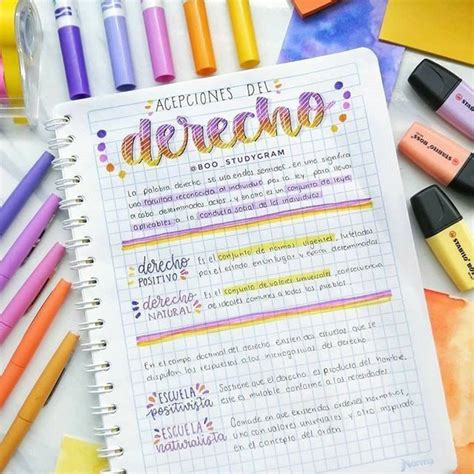 ACEPCIONES DEL
derecho
@BOO_STUDYGRAM
La palabra derecho se usa en dos sentidos, en uno significa
una facultad reconocida al individuo por la ley para llevar
a cabo determinados actos, y en otro es un conjunto de leyes
aplicables a la conducta social de los individuos.
derecho
POSITIVO
Es el conjunto de normas vigentes,
por el estado en un lugar y época determinados.
derecho
NATURAL
Es el conjunto de valores universales, consecuencia
de ideales comunes a todos los pueblos.
En el campo doctrinal del derecho existen dos escuelas que se
disputan las respuestas a las incógnitas del derecho.
ESCUELA
positivista
Sostiene que el derecho es producto del hombre,
este es mutable conforme a las necesidades.
ESCUELA
naturalista
en que existen dos órdenes normativos,
uno con valores universales y otro inspirado
en el concepto del orden.
Norma
STABILO BOSS
STABILO BOSS
STABILO BOSS